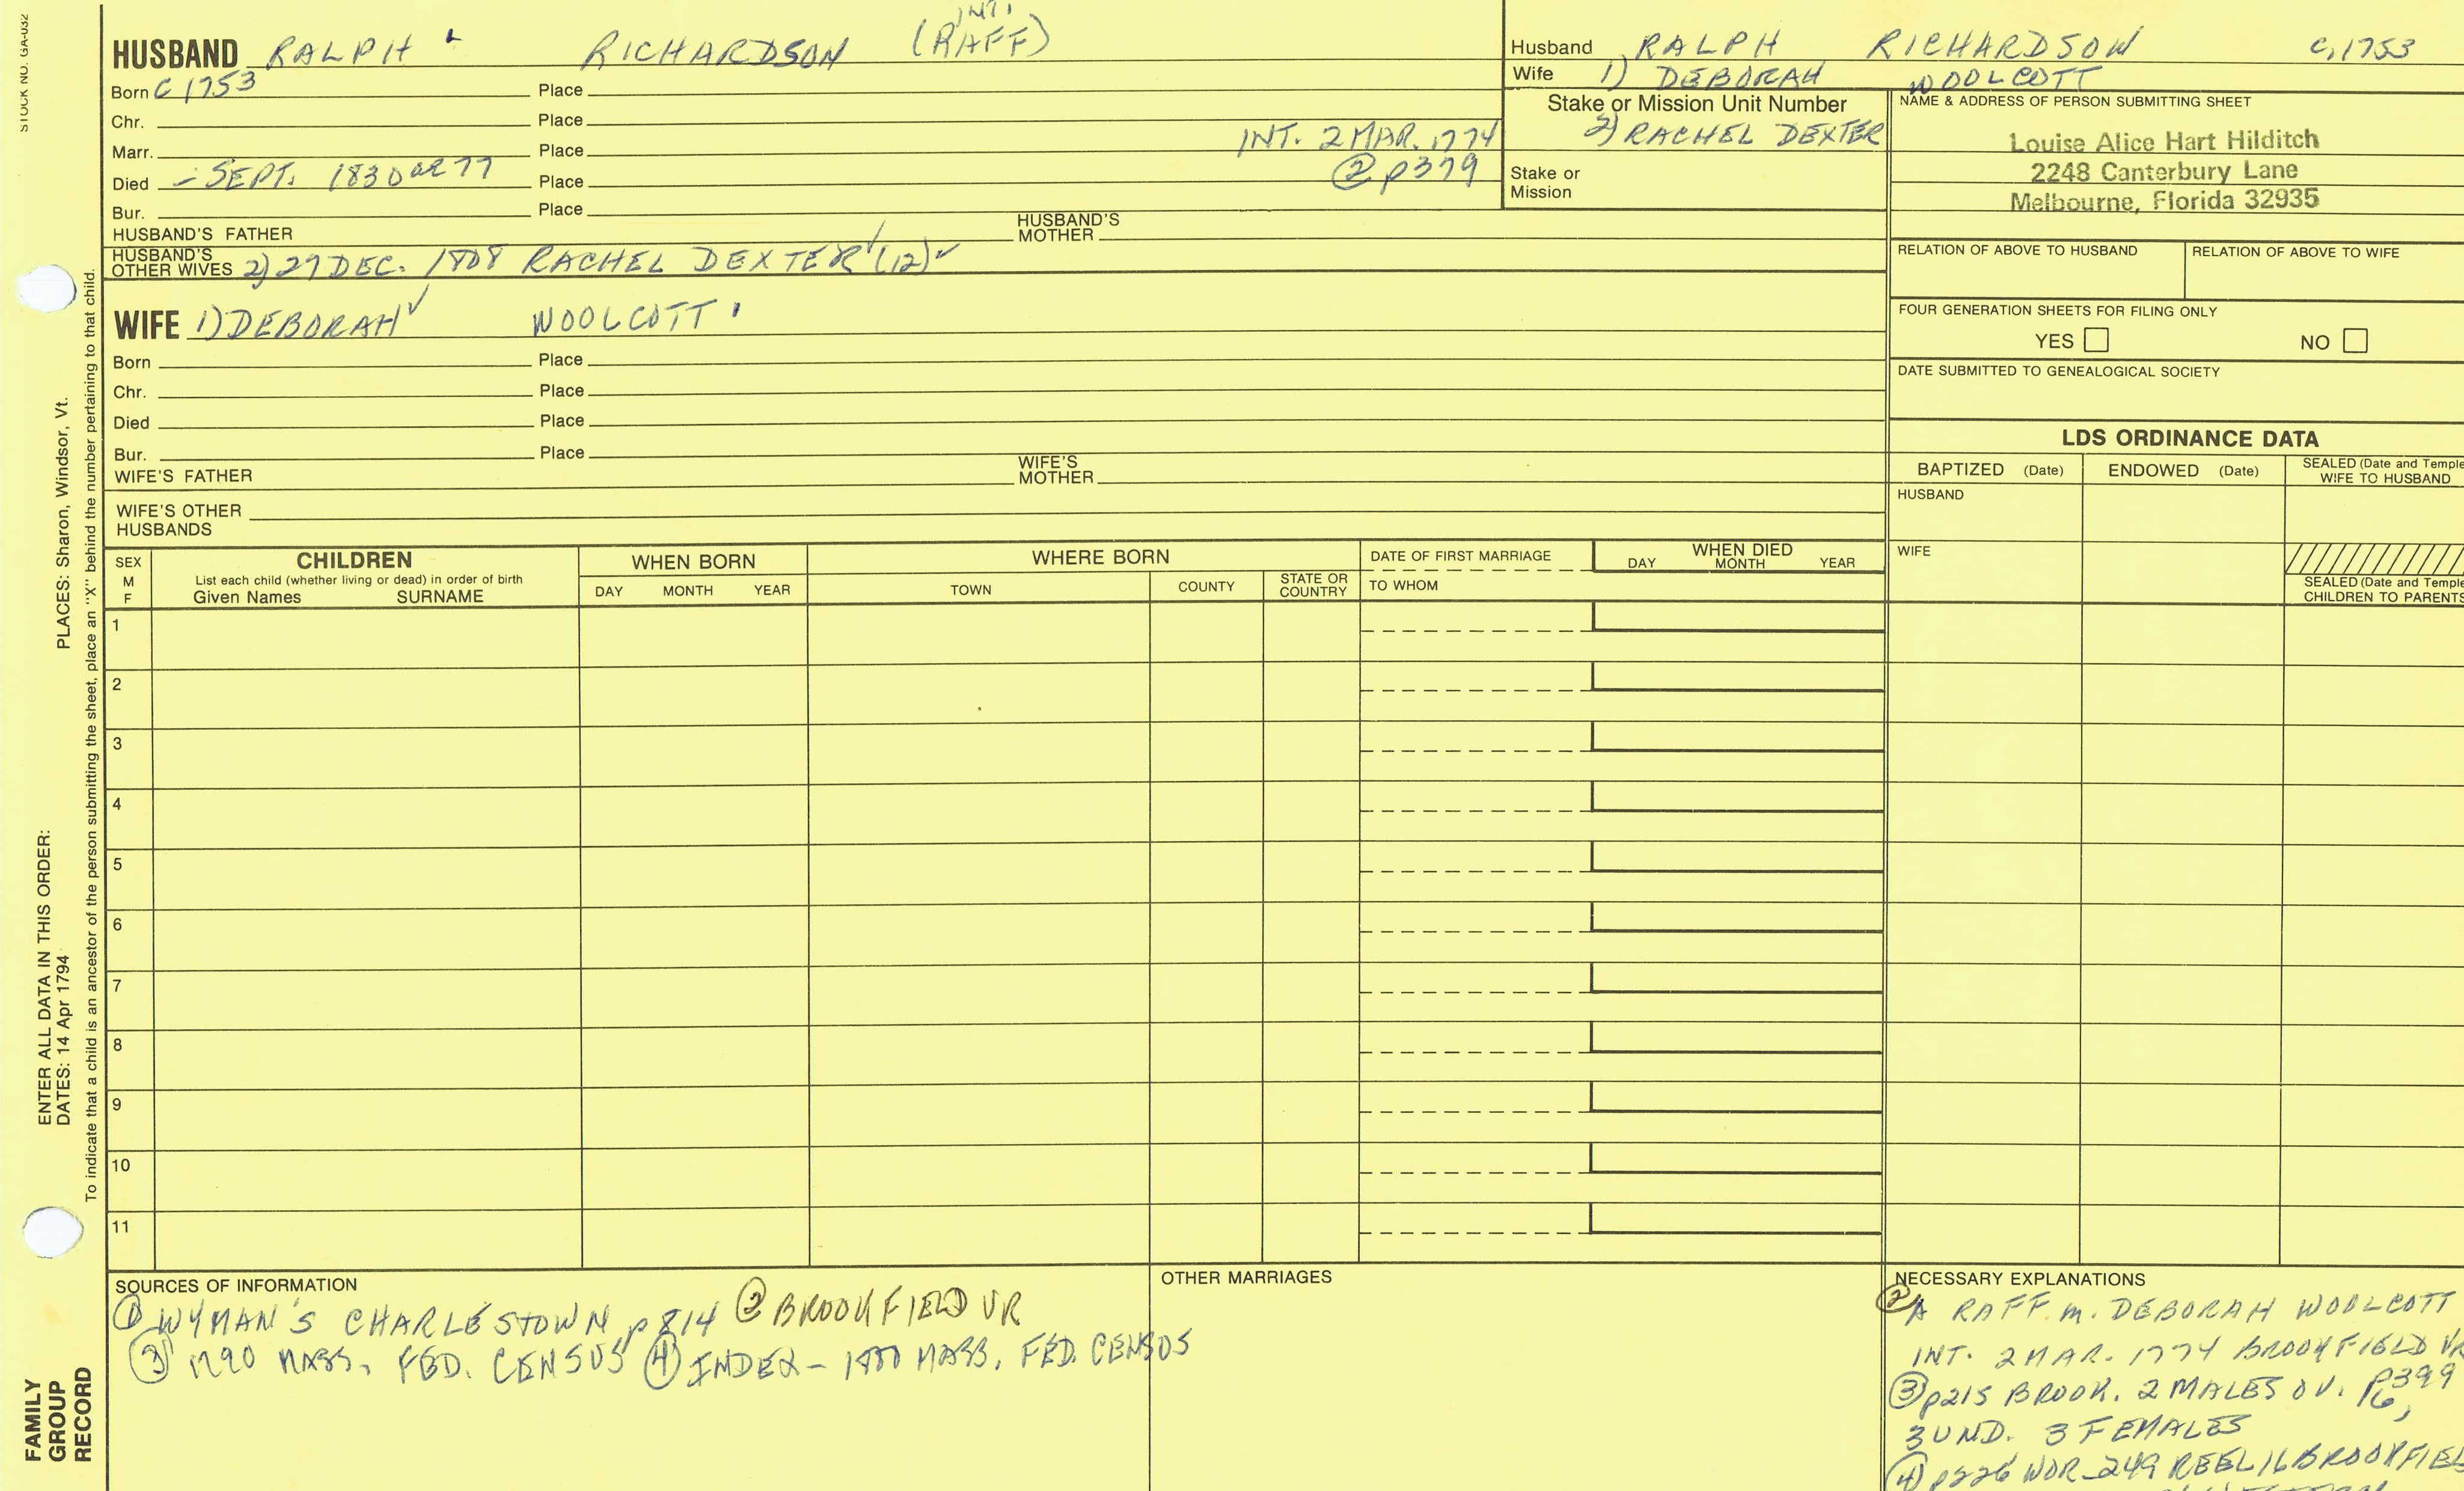 STOCK NO. GA-032
INT.
HUSBAND RALPH RICHARDSON (RAFF)
Born C 1753 Place
Chr. Place
Marr. Place INT. 2 MAR. 1774
Died - SEPT. 1830 Place @ p379
Bur. Place
HUSBAND'S FATHER HUSBAND'S MOTHER
HUSBAND'S OTHER WIVES 2) 29 DEC. 1808 RACHEL DEXTER (12)
WIFE 1) DEBORAH WOOLCOTT
Born Place
Chr. Place
Died Place
Bur. Place
WIFE'S FATHER WIFE'S MOTHER
WIFE'S OTHER HUSBANDS
Husband RALPH RICHARDSON C, 1753
Wife 1) DEBORAH WOOLCOTT
Stake or Mission Unit Number
2) RACHEL DEXTER
Stake or
Mission
NAME & ADDRESS OF PERSON SUBMITTING SHEET
Louise Alice Hart Hilditch
2248 Canterbury Lane
Melbourne, Florida 32935
RELATION OF ABOVE TO HUSBAND RELATION OF ABOVE TO WIFE
FOUR GENERATION SHEETS FOR FILING ONLY
YES NO
DATE SUBMITTED TO GENEALOGICAL SOCIETY
LDS ORDINANCE DATA
BAPTIZED (Date) ENDOWED (Date) SEALED (Date and Temple
WIFE TO HUSBAND
HUSBAND
WIFE
SEALED (Date and Temple
CHILDREN TO PARENTS
SEX
M
F
CHILDREN
List each child (whether living or dead) in order of birth
Given Names SURNAME
WHEN BORN
DAY MONTH YEAR
WHERE BORN
TOWN COUNTY STATE OR COUNTRY
DATE OF FIRST MARRIAGE
TO WHOM
WHEN DIED
DAY MONTH YEAR
1
2
3
4
5
6
7
8
9
10
11
SOURCES OF INFORMATION
① WYMAN'S CHARLESTOWN p 814 ② BROOKFIELD VR
③ 1790 MASS. FED. CENSUS ④ INDEX - 1800 MASS. FED. CENSUS
OTHER MARRIAGES
NECESSARY EXPLANATIONS
② A RAFF m. DEBORAH WOOLCOTT
INT. 2 MAR. 1774 BROOKFIELD VR
p399
③ p215 BROOK. 2 MALES OV. 16,
3 UND. 3 FEMALES
④ p226 WOR_249 REEL 16 BROOKFIEL
ENTER ALL DATA IN THIS ORDER:
DATES: 14 Apr 1794
PLACES: Sharon, Windsor, Vt.
To indicate that a child is an ancestor of the person submitting the sheet, place an "X" behind the number pertaining to that child.
FAMILY
GROUP
RECORD